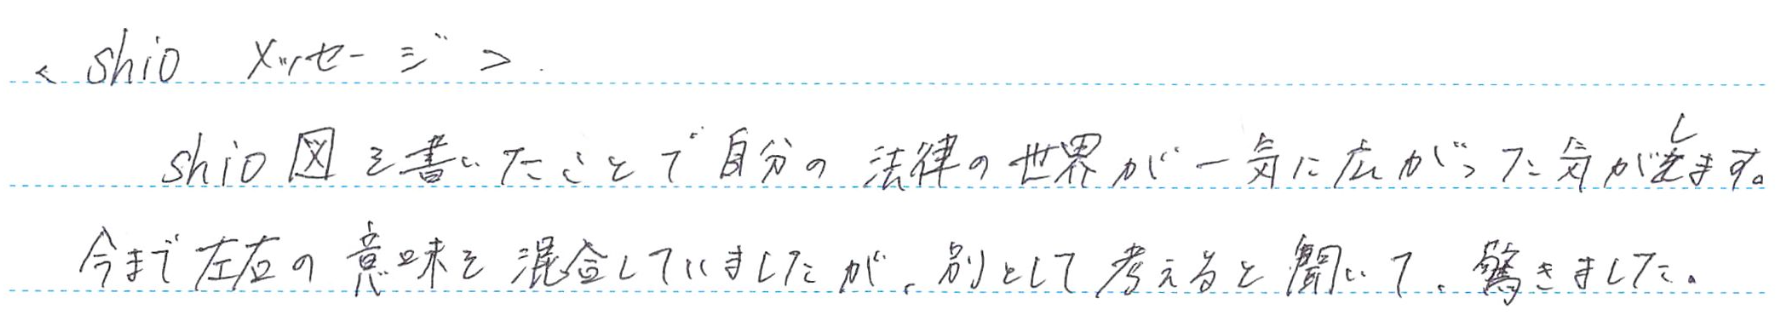 <shio メッセージ>
shio図を書いたことで自分の法律の世界が一気に広がった気がします。
今まで左右の意味を混合していましたが、別として考えると聞いて、驚きました。